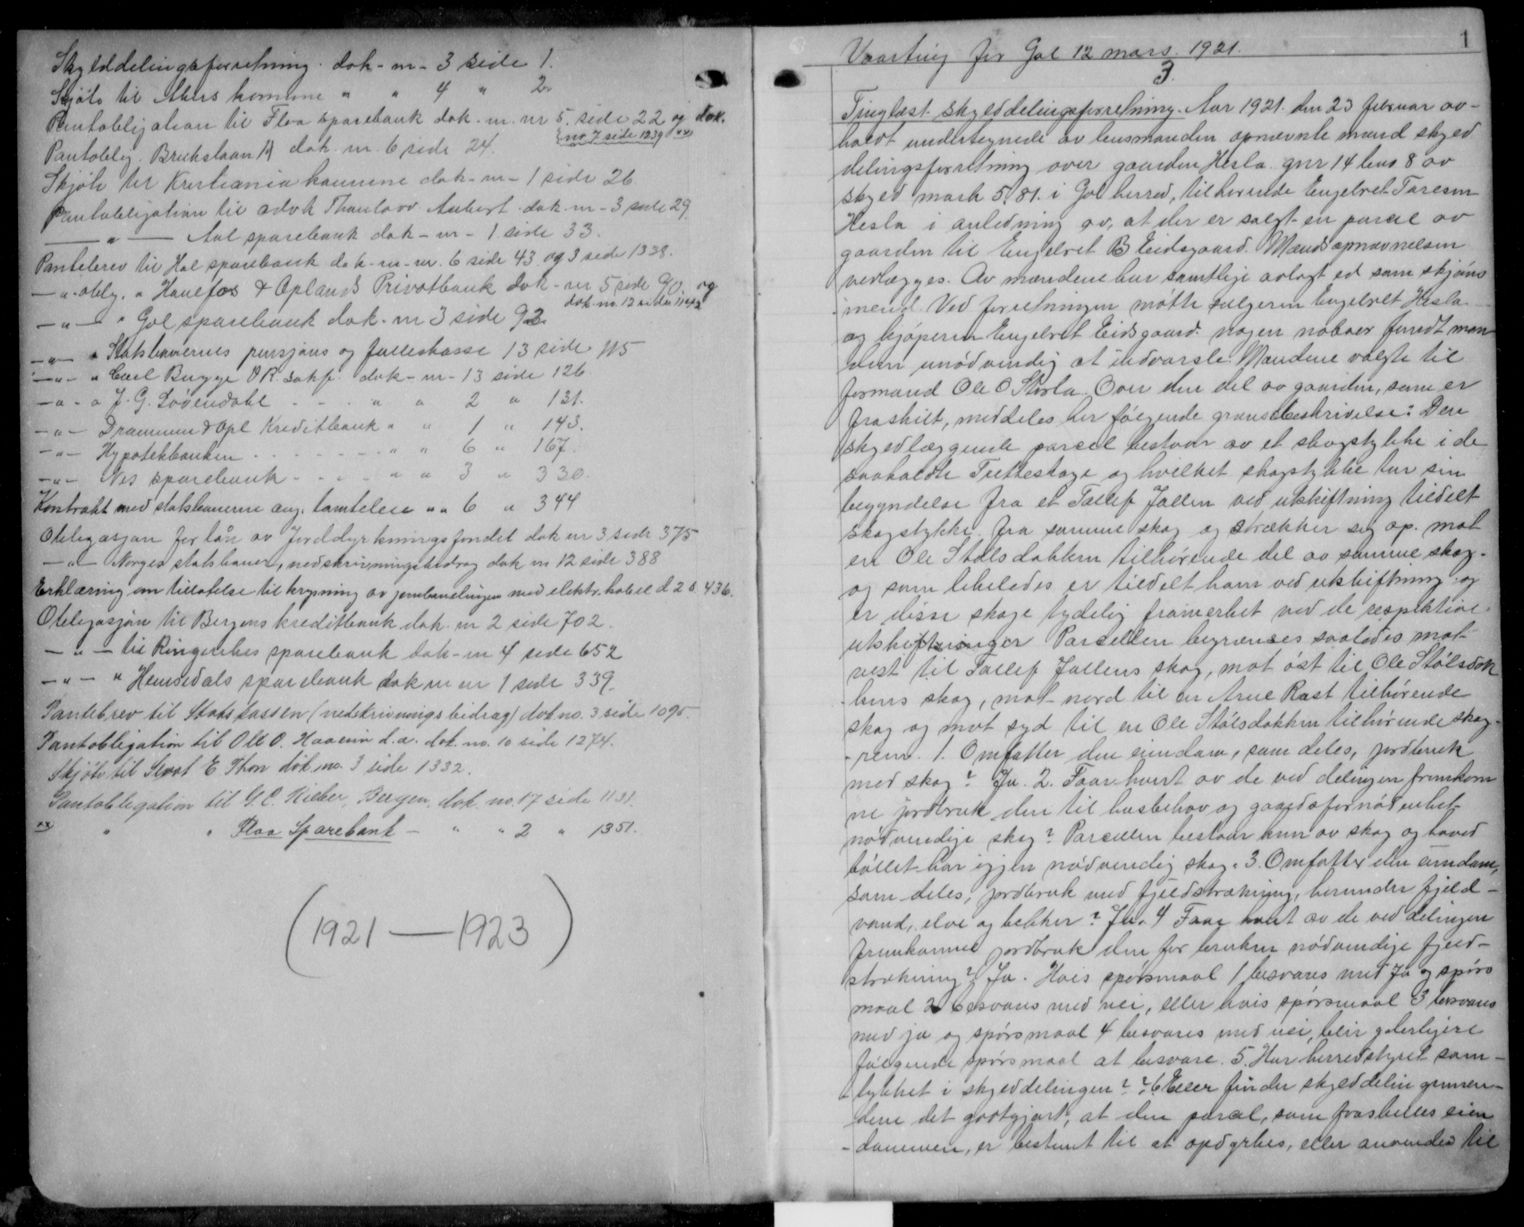 Skylddelingsforretning dok-nr- 3 side 1.
Skjöte til Akers komune " " 4 " 2.
Pantobligation til Flaa Sparebank dok. nr. nr 5. side 22 og dok.
no 7 side 1239 xx)
Pantoblig. Brukslaan A dok nr. 6 side 24.
Skjöte til Kristiania komune dok-nr- 1 side 26
Pantobligation til advk Thaulow Aubert dok-nr- 3 side 29.
— " — Aal sparebank dok-nr- 1 side 33.
Pantebrev til Hol sparebank dok-nr-nr. 6 side 43 og 3 side 1338.
— " - oblg. " Hönefos & Oplands Privatbank dok-nr 5 side 90. og
dok no. 12 side 1142
— " — " Gol sparebank dok-nr 3 side 92.
— " — " Statsbanernes pensjons og felleskasse 13 side 115
— " — " Carl Bugge O.R. sakf. dok-nr- 13 side 126
— " - " J. G. Lövendahl - - " " 2 " 131.
— " — Drammens & Opl Kreditbank " " 1 " 143.
— " — Hypotekbanken - - - - " " 6 " 167.
— " — Nes sparebank - - - " " 3 " 330.
Kontrakt med statsbanerne ang. " " 6 " 344
Obligasjon for lån av Jorddyrkningsfondet dok nr 3 side 375
— " — Norges statsbaner, nedskrivningsbidrag dok nr 12 side 388
Erklæring om tillatelse til krysning av jernbanelinjen med elektr. kabel d 2 s. 436.
Obligasjon til Bergens kreditbank dok. nr 2 side 702.
— " — til Ringerikes sparebank dok-nr 4 side 652
— " — " Hemsedals sparebank dok nr nr 1 side 339.
Pantebrev til Statskassen (nedskrivningsbidrag) dok no. 3 side 1095.
Pantobligation til Ole O. Haaein d.a. dok. no. 10 side 1274.
Skjöte til Knut E Thon dok no. 3 side 1332.
Pantobligation til G. C. Rieber, Bergen, dok. no. 17 side 1131.
xx) " " Flaa Sparebank — " " 2 " 1351.
(1921 — 1923)
1
Vaarting for Gol 12 mars 1921.
3.
Tinglæst skylddelingsforretning. Aar 1921. den 23 februar av-
holdt undertegnede av lensmanden opnævnte mænd skyld
delingsforretning over gaarden Hesla gnr 14 bno 8 av
skyld mark 5.81. i Gol herred, tilhörende Engebret Taresen
Hesla i anledning av, at der er solgt en parcel av
gaarden til Engebret B Eidsgaard. Mandsopnævnelsen
vedlægges. Av mændene har samtlige avlagt ed som skjöns
mænd. Ved forretningen mötte sælgeren Engebret Hesla
og kjöperen Engebret Eidsgaard. nogen naboer fandt mæn
dene unödvendig at indvarsle. Mændene valgte til
formand Ole O Storla. Over den del av gaarden, som er
fraskilt, meddeles her fölgende grænsebeskrivelse: Den
skyldlæggende parcel bestaar av et skogstykke i de
saakaldte Tretteskoge og hvilket skogstykke har sin
begyndelse fra et Tollef Jallen ved utskiftning tildelt
skogstykke fra samme skog og strækker sig op. mot
en Ole Stölsdokken tilhörende del av samme skog.
og som likeledes er tildelt ham ved utskiftning og
er disse skoge tydelig framerket ved de respektive
utskiftninger Parcellen begrænses saaledes mot
vest til Tollef Jallens skog, mot öst til Ole Stölsdok
kens skog, mot nord til en Arne Rust tilhörende
skog og mot syd til en Ole Stölsdokken tilhörende skog-
rem. 1. Omfatter den eiendom, som deles, jordbruk
med skog? Ja. 2. Faar hvert av de ved delingen fremkom
ne jordbruk den til husbehov og gaardsfornödenhet
nödvendige skog? Parcellen bestaar kun av skog og hoved
böllet har igjen nödvendig skog. 3. Omfatter den eiendom,
som deles, jordbruk med fjeldstrækning, herunder fjeld-
vand, elve og bekker? Ja. 4 Faar hvert av de ved delingen
fremkomne jordbruk den for bruken nödvendige fjeld-
strækning? Ja. Hvis spörsmaal 1 besvares med ja og spörs
maal 2 besvares med nei, eller hvis spörsmaal 3 besvares
med ja og spörsmaal 4 besvares med nei, blir yderligere
fölgende spörsmaal at besvare. 5. Har herredstyret sam-
tykket i skylddelingen? 6 Eller finder skylddelingsmæn-
dene det godtgjort, at den parcel, som fraskilles eien
dommen, er bestemt til at opdyrkes, eller anvendes til